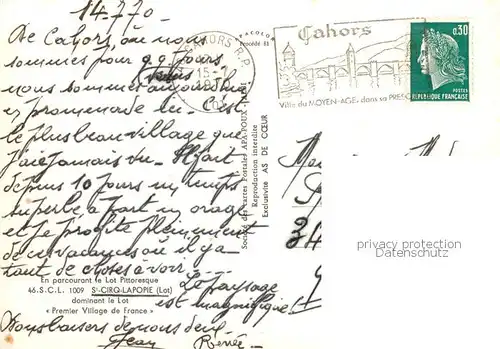 14.7.70
De Cahors, où nous
sommes pour qq. jours
nous sommes aujourd'hui
en promenade ici. C'est
le plus beau village que
j'aie jamais vu. Il fait
depuis 10 jours un temps
superbe, à part un orage
et je profite pleinement
de ces vacances où il y a
tant de choses à voir.
Le paysage
est magnifique !
Bons baisers de nous deux
Jean Renée
En parcourant le Lot Pittoresque
46.S.C.L. 1009 St-CIRQ-LAPOPIE (Lot)
dominant le Lot
« Premier Village de France »
Société des Cartes Postales APA-POUX
Reproduction interdite
Exclusivité AS DE CŒUR
Procédé
CAHORS R.P.
15-7
LOT
Cahors
Ville du MOYEN-AGE, dans sa
0,30
POSTES
REPUBLIQUE FRANÇAISE
34
privacy protection
Datenschutz